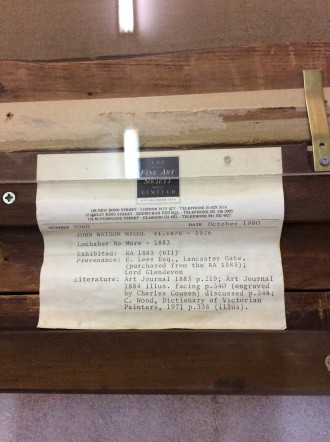 THE
FINE ART
SOCIETY
LIMITED
148 NEW BOND STREET · LONDON W1Y 0JT · TELEPHONE 01-629 5116
12 GREAT KING STREET · EDINBURGH EH3 6QL · TELEPHONE 031 556 0305
134 BLYTHSWOOD STREET · GLASGOW G2 4EL · TELEPHONE 041 332 4027
NUMBER 5060 DATE October 1980
JOHN WATSON NICOL fl.1876 - 1926
Lochaber No More - 1883
Exhibited: RA 1883 (611)
Provenance: E. Lees Esq., Lancaster Gate,
(purchased from the RA 1883);
Lord Glendevon
Literature: Art Journal 1883 p.219; Art Journal
1884 illus. facing p.340 (engraved
by Charles Cousen) discussed p.348;
C. Wood, Dictionary of Victorian
Painters, 1971 p.336 (illus).